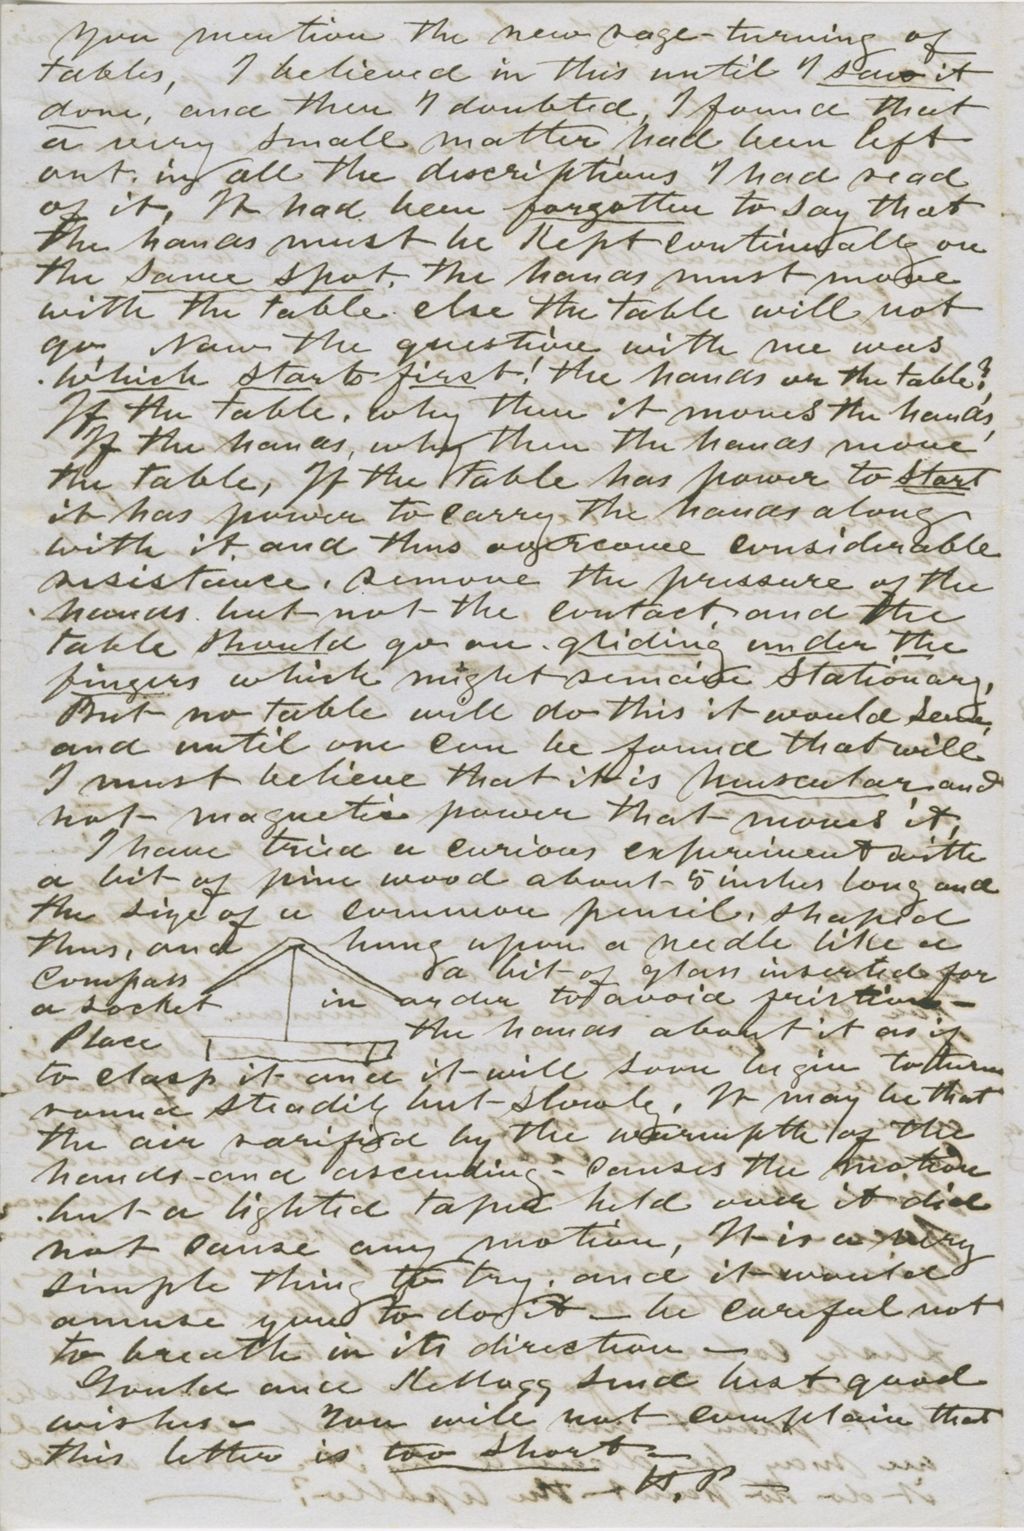 You mention the new rage-turning of
tables, I believed in this until I saw it
done, and then I doubted, I found that
a very small matter had been left
out. in all the descriptions I had read
of it, It had been forgotten to say that
the hands must be kept continually on
the same spot. the hands must move
with the table. else the table will not
go. Now the question with me was
which starts first! the hands or the table?
If the table. why then it moves the hands,
If the hands, why then the hands move
the table, If the table has power to start
it has power to carry the hands along
with it, and thus overcome considerable
resistance. remove the pressure of the
hands. but not the contact, and the
table should go on. gliding under the
fingers which might remain stationary,
But no table will do this it would seem,
and until one can be found that will
I must believe that it is muscular and
not magnetic power that moves it,
I have tried a curious experiment with
a bit of pine wood about 5 inches long and
the size of a common pencil, shaped
thus, and hung upon a needle like a
compass a bit of glass inserted for
a socket in order to avoid friction—
Place the hands about it as if
to clasp it and it will soon begin to turn
round steadily but slowly, It may be that
the air rarified by the warmpth of the
hands-and ascending-causes the motion
but a lighted taper held over it did
not cause any motion, It is a very
simple thing to try. and it would
amuse you to do it — be careful not
to breath in its direction —
Gould and Kellogg send best good
wishes — You will not complain that
this letter is too short —
H. P —